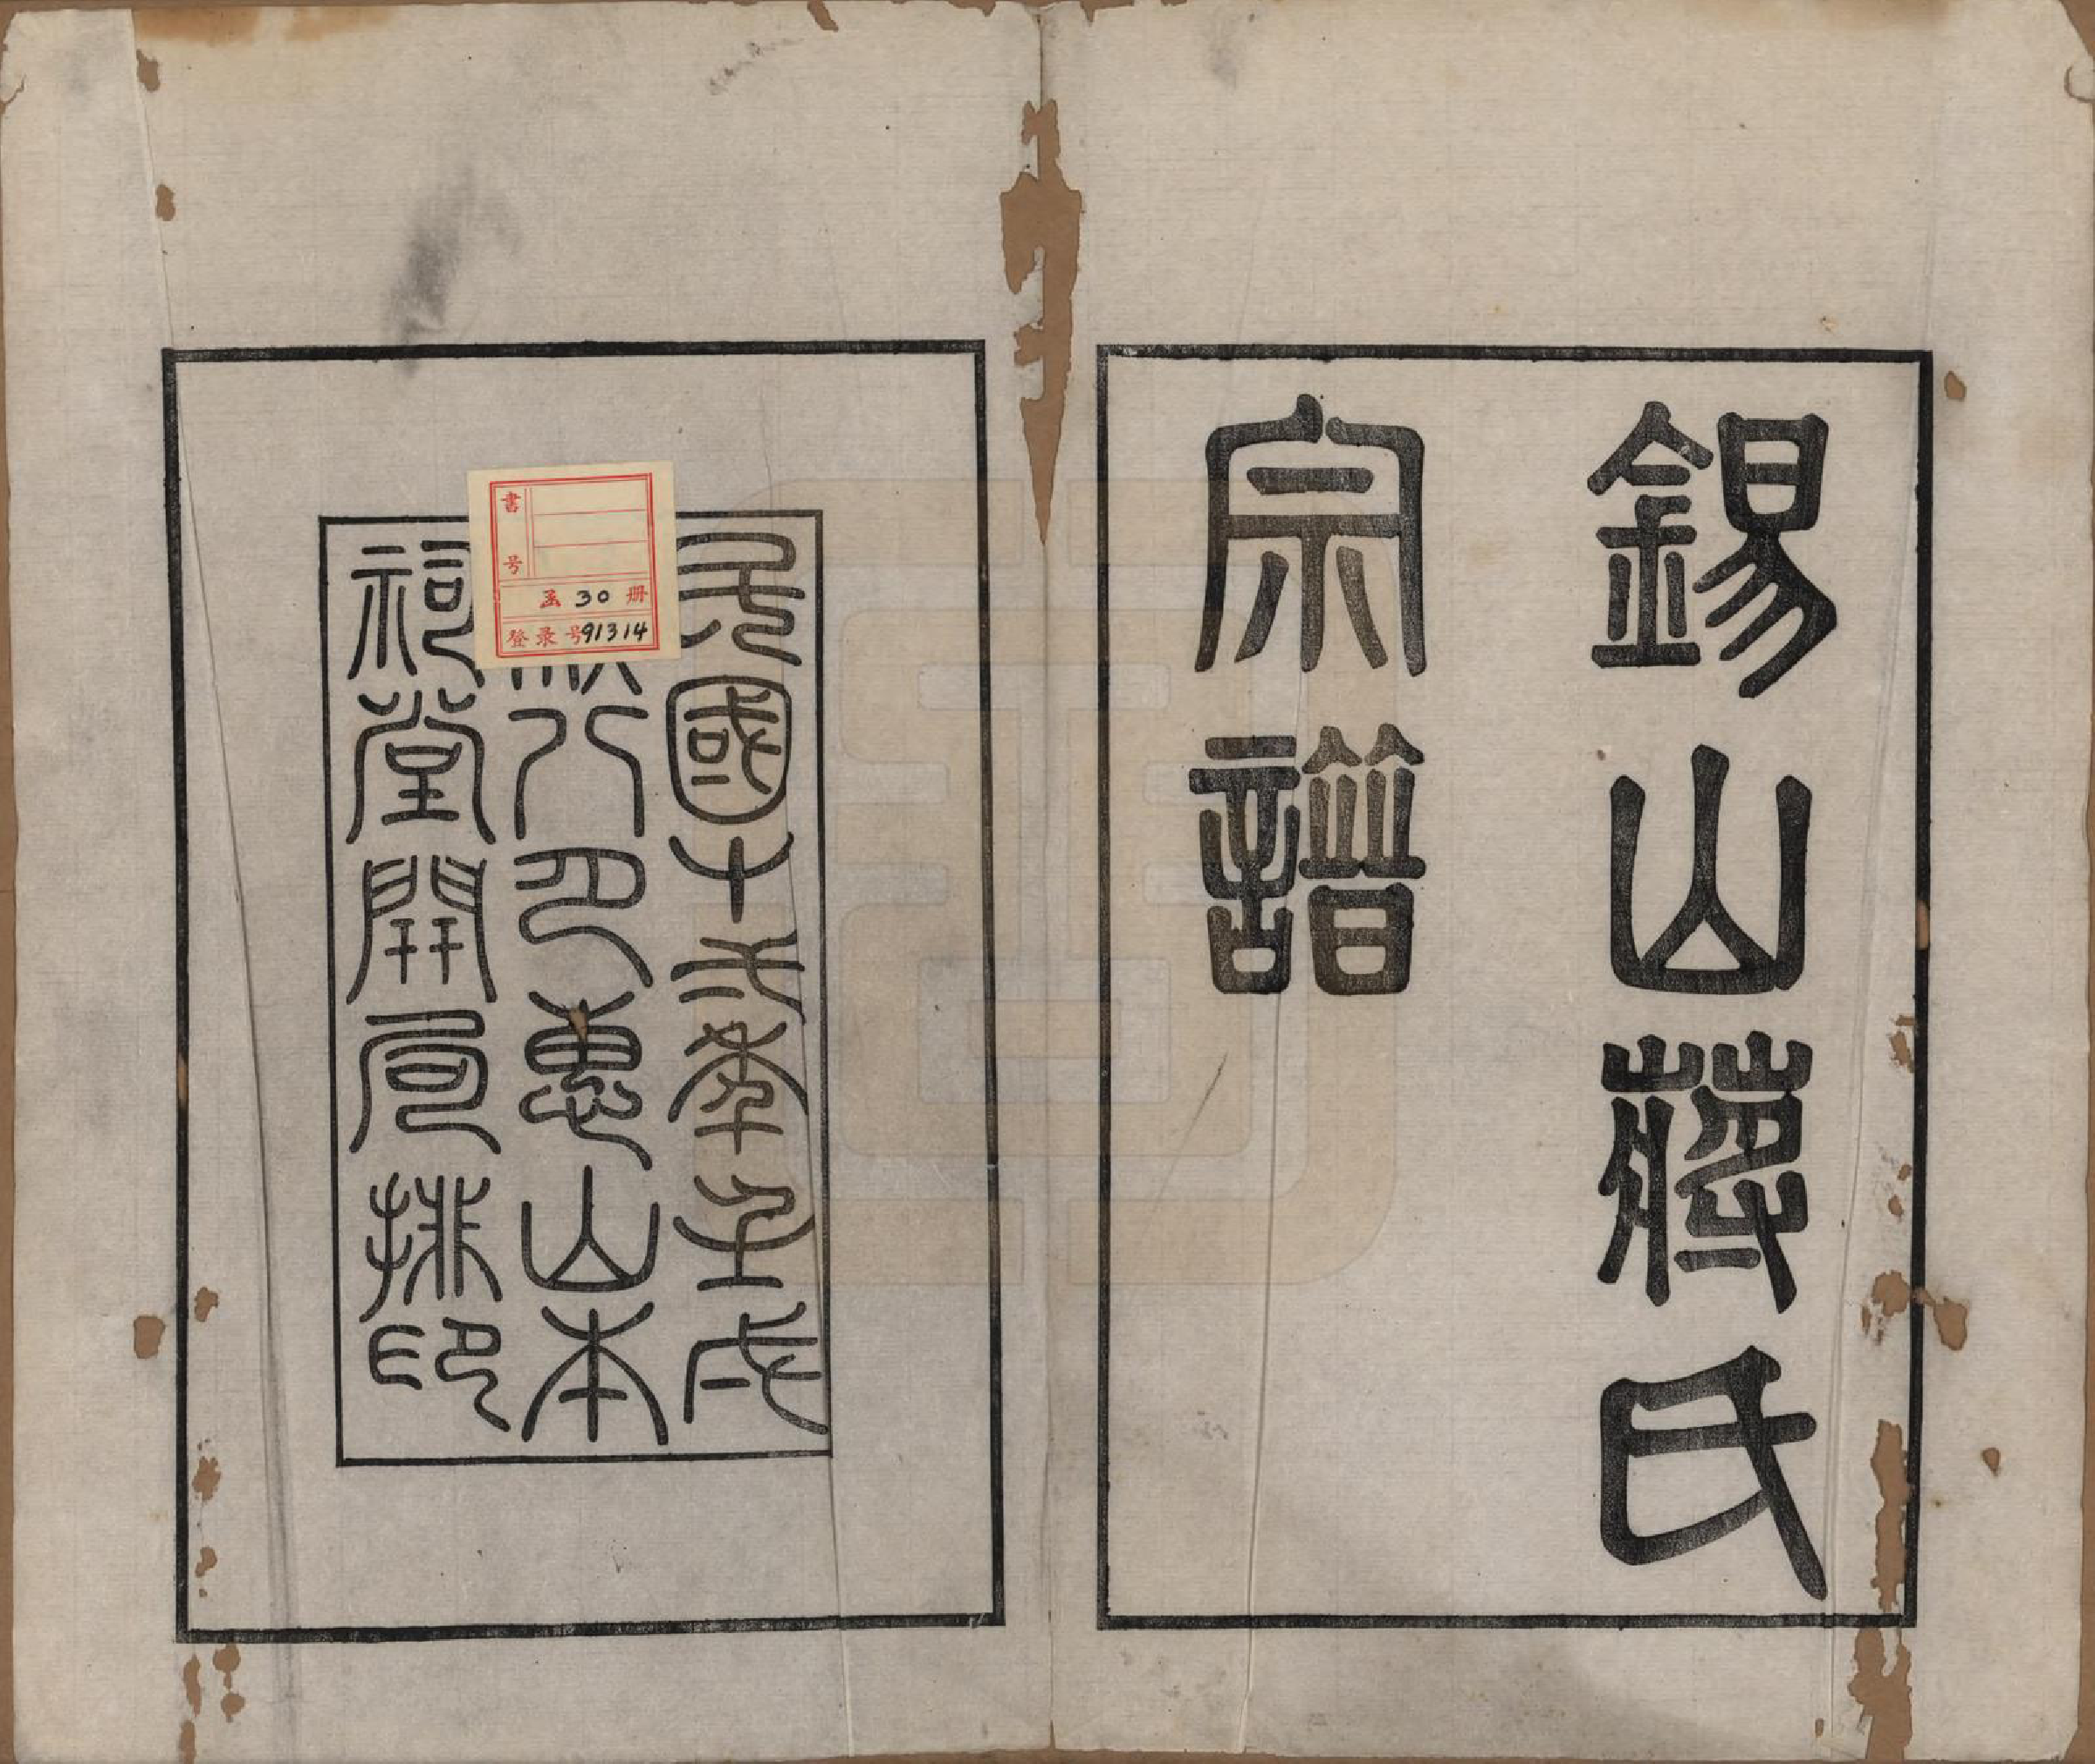 錫山蔣氏
宗譜
民國十弌秊壬戌
八月惠山本
祠堂開局排印
書号
函 30 册
登录号91314